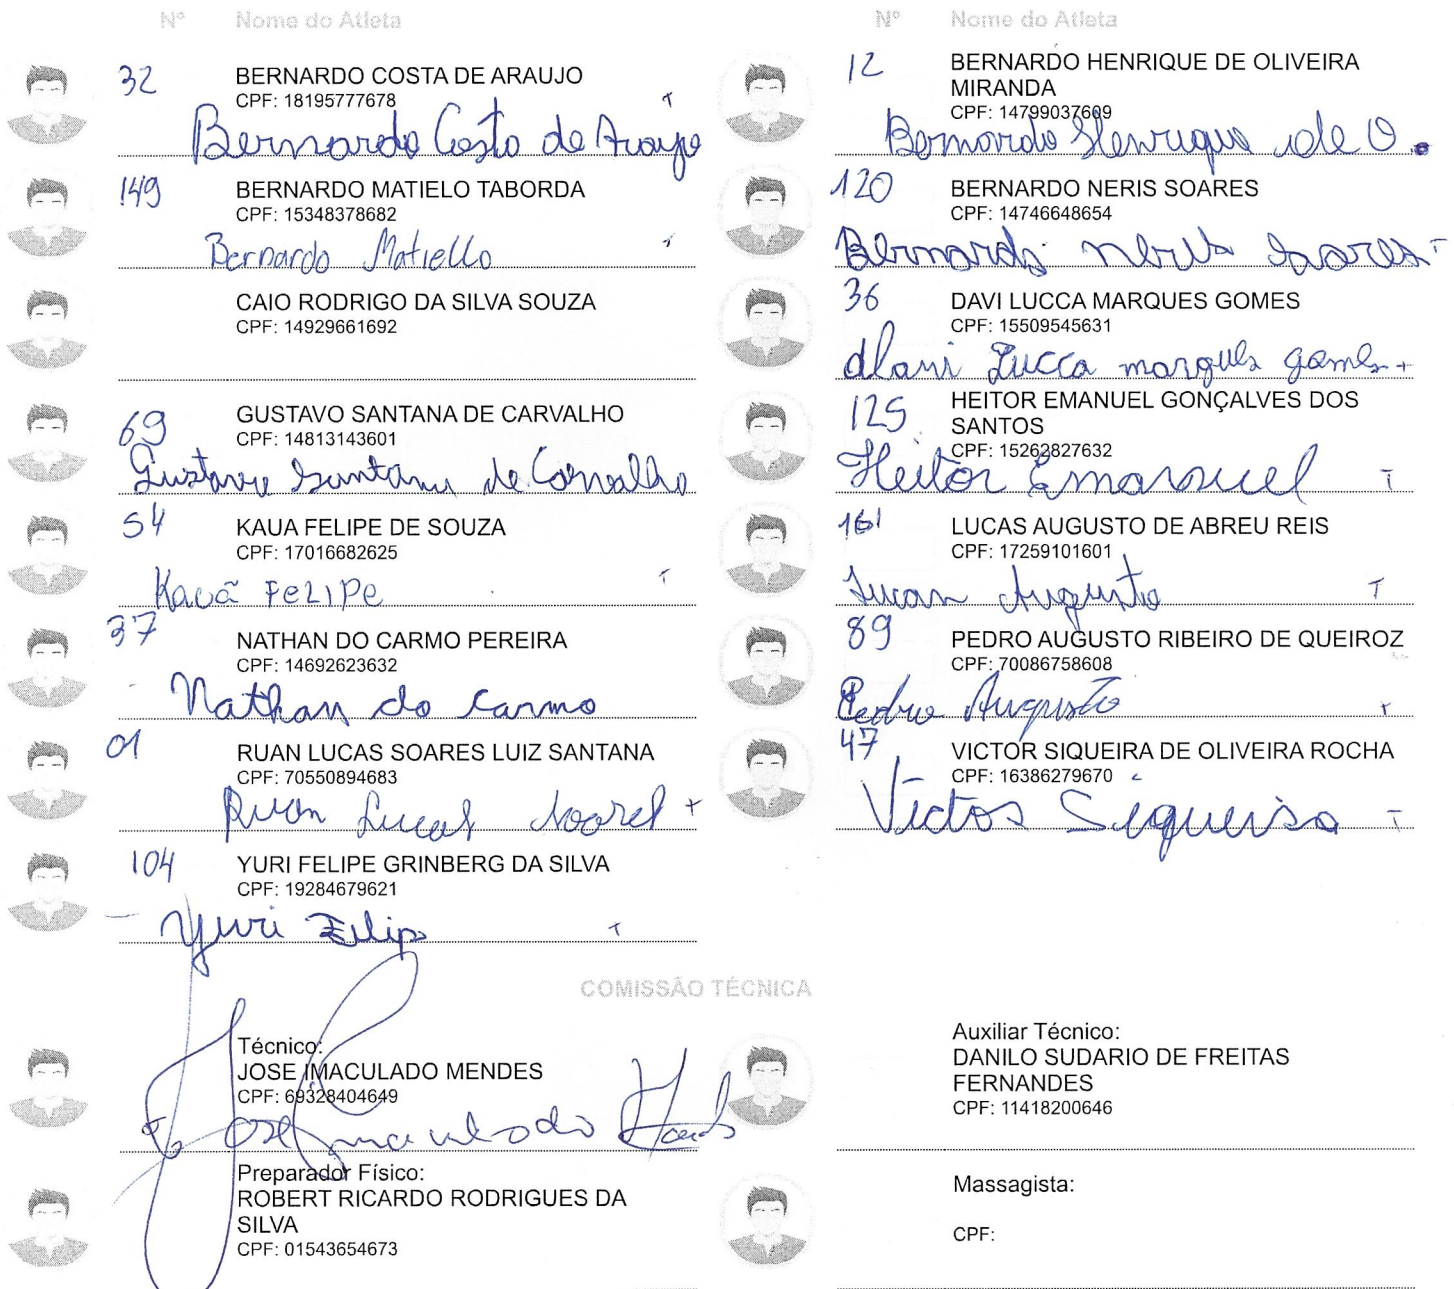 Nº Nome do Atleta
32 BERNARDO COSTA DE ARAUJO
CPF: 18195777678
T
Bernardo Costa de Araujo
149 BERNARDO MATIELO TABORDA
CPF: 15348378682
Bernardo Matiello T
CAIO RODRIGO DA SILVA SOUZA
CPF: 14929661692
69 GUSTAVO SANTANA DE CARVALHO
CPF: 14813143601
Gustavo Santana de Carvalho
54 KAUA FELIPE DE SOUZA
CPF: 17016682625
Kauã FeLIPe T
37 NATHAN DO CARMO PEREIRA
CPF: 14692623632
Nathan do carmo
01 RUAN LUCAS SOARES LUIZ SANTANA
CPF: 70550894683
Ruan Lucas Soares +
104 YURI FELIPE GRINBERG DA SILVA
CPF: 19284679621
Yuri Felip T
Nº Nome do Atleta
12 BERNARDO HENRIQUE DE OLIVEIRA
MIRANDA
CPF: 14799037609
Bernardo Henrique de O.
120 BERNARDO NERIS SOARES
CPF: 14746648654
Bernardo neris Soares T
36 DAVI LUCCA MARQUES GOMES
CPF: 15509545631
Lucca marques gomes +
125 HEITOR EMANUEL GONÇALVES DOS
SANTOS
CPF: 15262827632
Heitor Emanuel T
161 LUCAS AUGUSTO DE ABREU REIS
CPF: 17259101601
Lucas Augusto T
89 PEDRO AUGUSTO RIBEIRO DE QUEIROZ
CPF: 70086758608
Pedro Augusto +
47 VICTOR SIQUEIRA DE OLIVEIRA ROCHA
CPF: 16386279670
Victor Siqueira T
COMISSÃO TÉCNICA
Técnico:
JOSE IMACULADO MENDES
CPF: 69328404649
José Imaculado Mendes
Auxiliar Técnico:
DANILO SUDARIO DE FREITAS
FERNANDES
CPF: 11418200646
Preparador Físico:
ROBERT RICARDO RODRIGUES DA
SILVA
CPF: 01543654673
Massagista:
CPF: